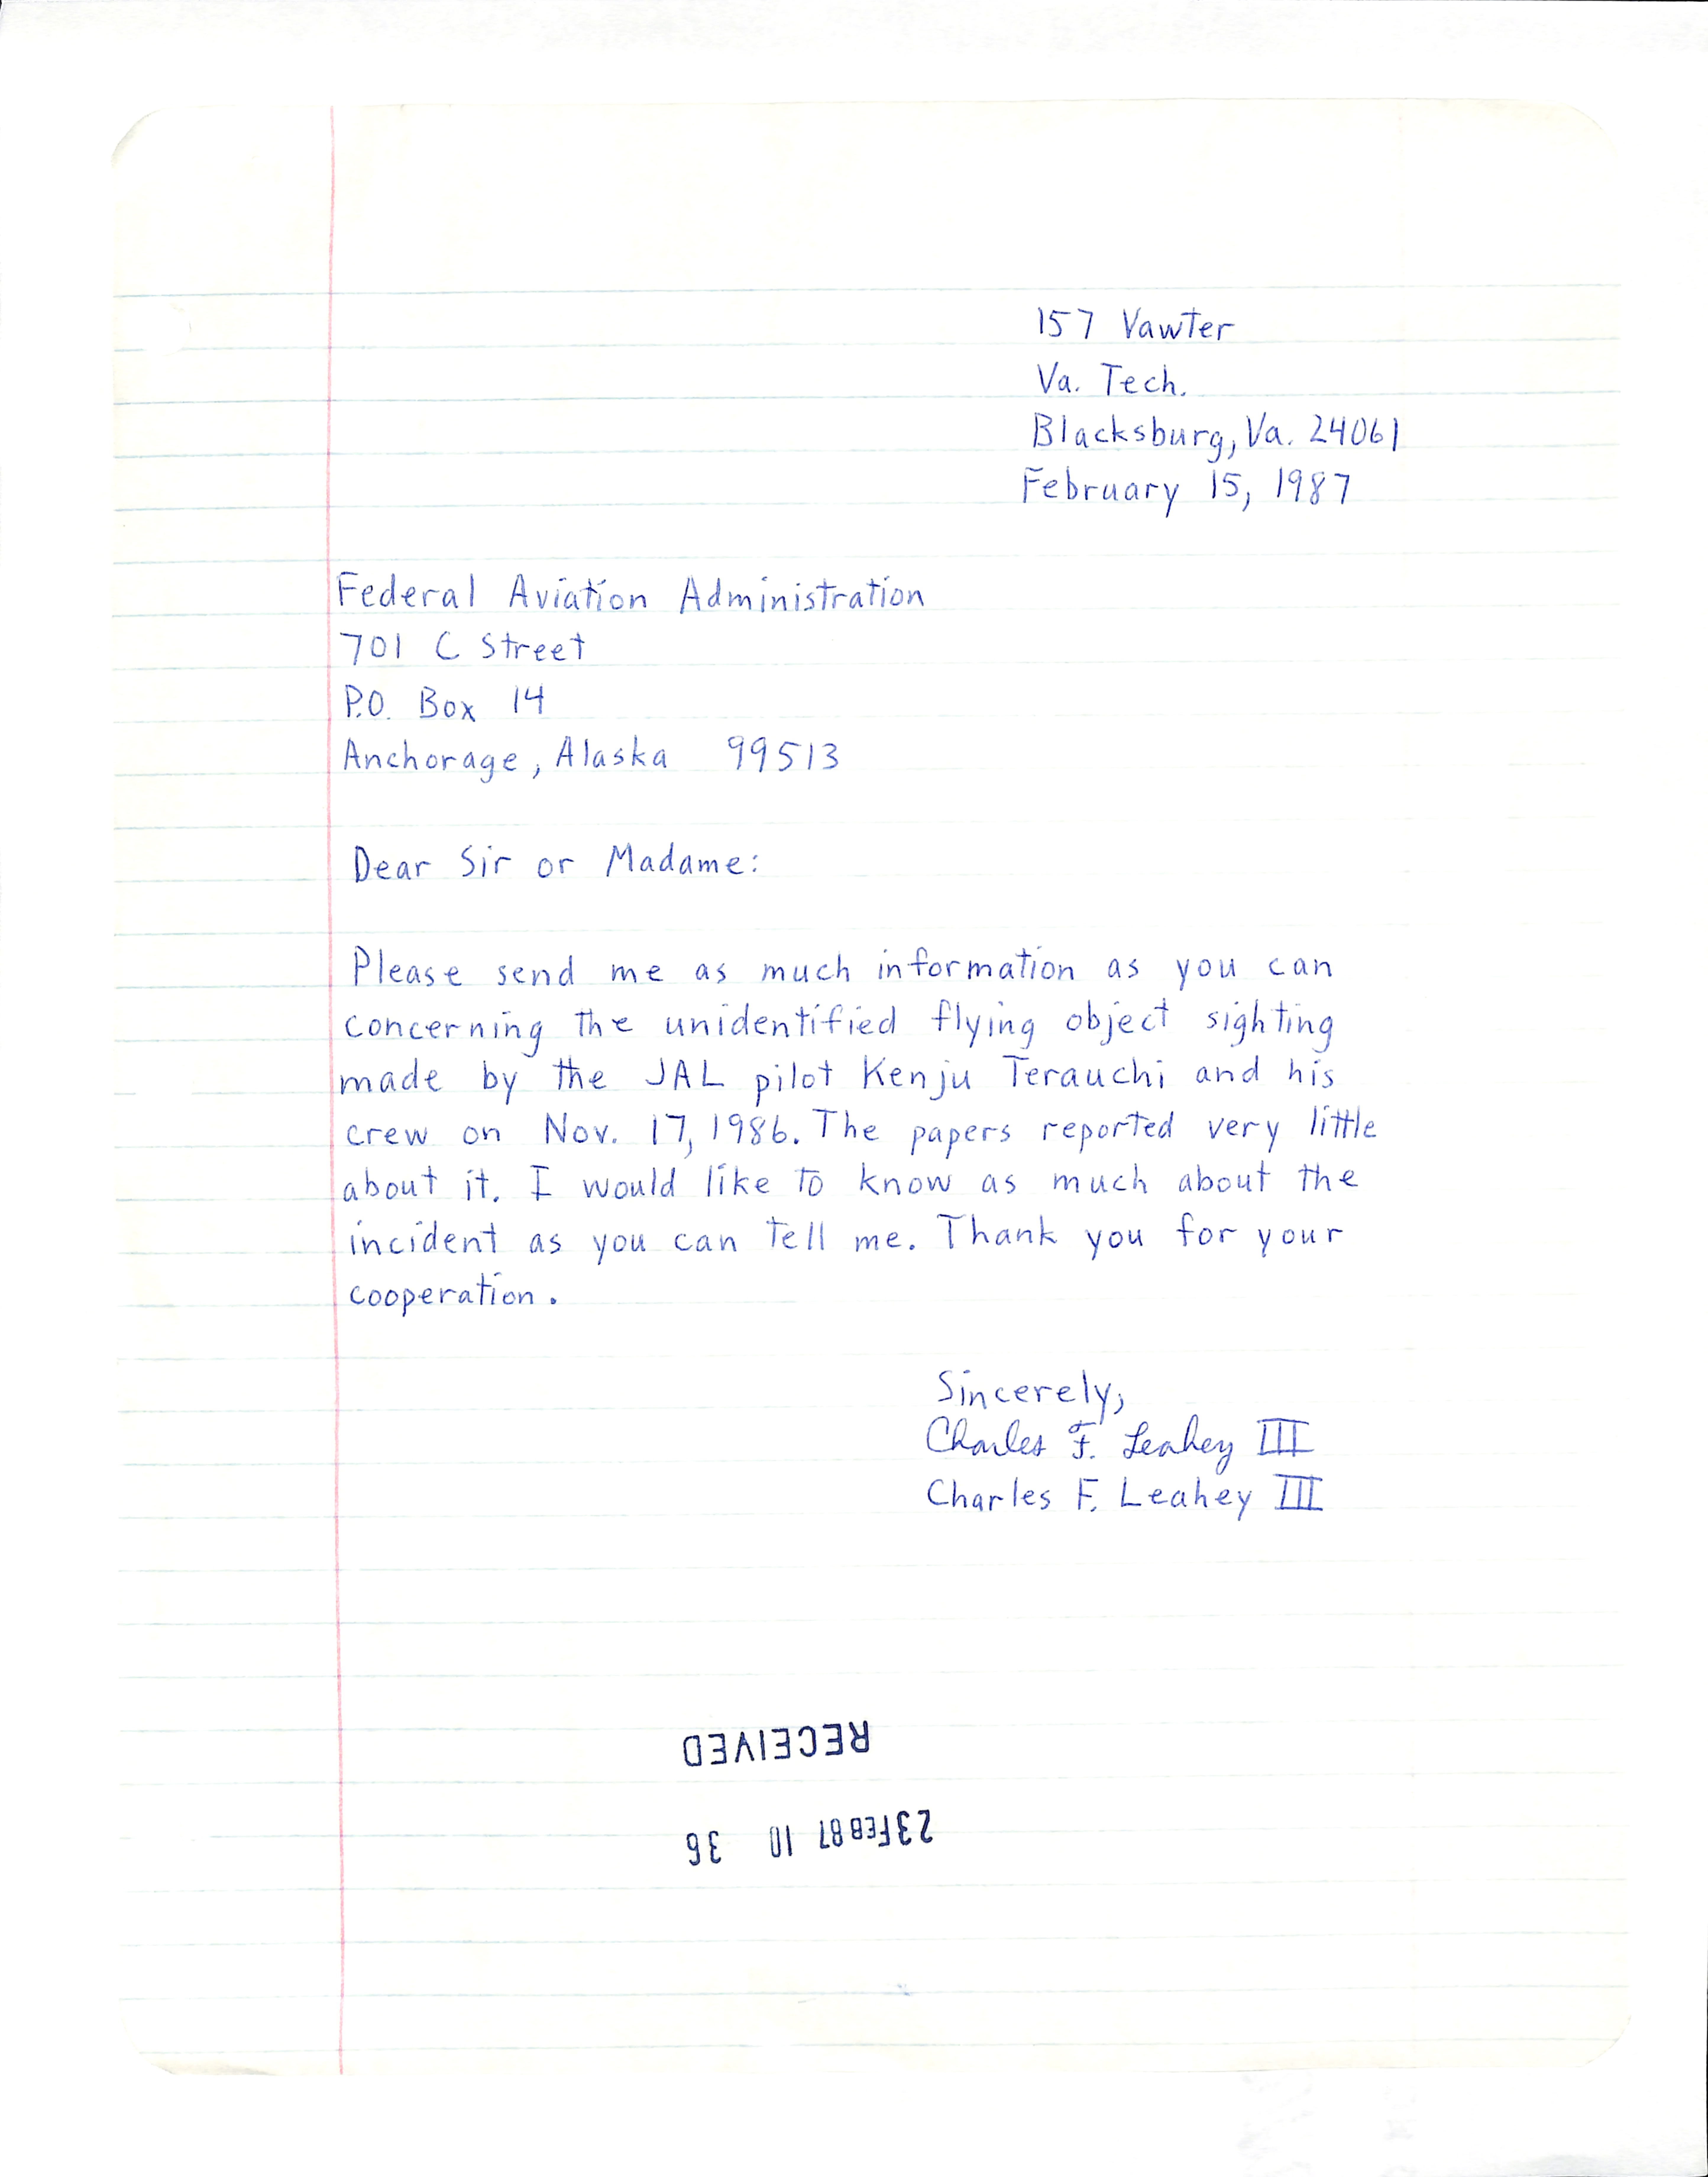 157 Vawter
Va. Tech.
Blacksburg, Va. 24061
February 15, 1987
Federal Aviation Administration
701 C Street
P.O. Box 14
Anchorage, Alaska 99513
Dear Sir or Madame:
Please send me as much information as you can
concerning the unidentified flying object sighting
made by the JAL pilot Kenju Terauchi and his
crew on Nov. 17, 1986. The papers reported very little
about it. I would like to know as much about the
incident as you can tell me. Thank you for your
cooperation.
Sincerely,
Charles F. Leahey III
Charles F. Leahey III
RECEIVED
23 FEB 87 10 36